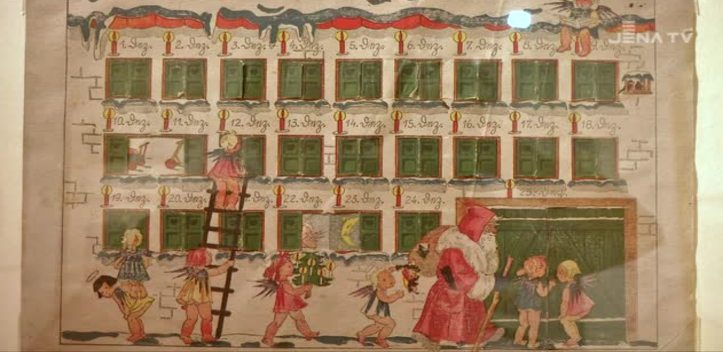 JENA TV
1. Dez. 2. Dez. 3. Dez. 4. Dez. 5. Dez. 6. Dez. 7. Dez. 8. Dez. 9. Dez.
10. Dez. 11. Dez. 12. Dez. 13. Dez. 14. Dez. 15. Dez. 16. Dez. 17. Dez. 18. Dez.
19. Dez. 20. Dez. Dez. 22. Dez. 23. Dez. 24. Dez. 25. Dez.